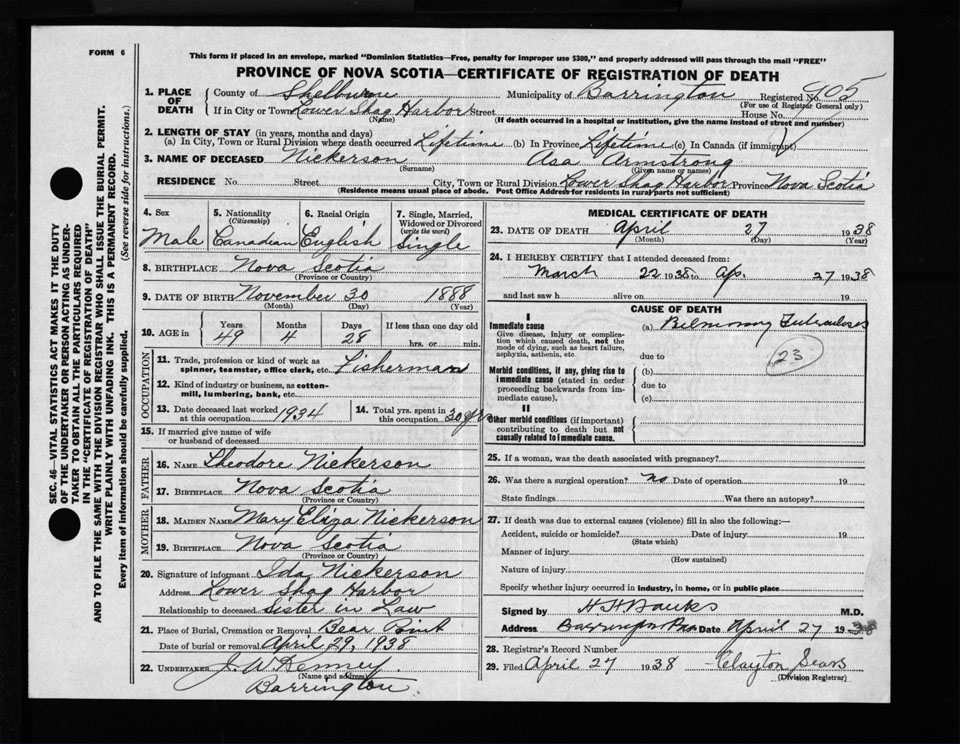 FORM 6
This form if placed in an envelope, marked "Dominion Statistics—Free, penalty for improper use $300," and properly addressed will pass through the mail "FREE"
PROVINCE OF NOVA SCOTIA—CERTIFICATE OF REGISTRATION OF DEATH
1. PLACE OF DEATH
County of Shelburne Municipality of Barrington Registered No. 905
(For use of Registrar General only)
If in City or Town Lower Shag Harbor Street House No.
(Name) (If death occurred in a hospital or institution, give the name instead of street and number)
2. LENGTH OF STAY (in years, months and days)
(a) In City, Town or Rural Division where death occurred Lifetime (b) In Province Lifetime (c) In Canada (if immigrant)
3. NAME OF DECEASED Nickerson Asa Armstrong
(Surname) (Given name or names)
RESIDENCE No. Street City, Town or Rural Division Lower Shag Harbor Province Nova Scotia
(Residence means usual place of abode. Post Office Address for residents in rural parts not sufficient)
4. Sex
Male
5. Nationality
(Citizenship)
Canadian
6. Racial Origin
English
7. Single, Married, Widowed or Divorced
(write the word)
Single
8. BIRTHPLACE Nova Scotia
(Province or Country)
9. DATE OF BIRTH November 30 1888
(Month) (Day) (Year)
10. AGE in
Years Months Days If less than one day old
49 4 28 hrs. or min.
OCCUPATION
11. Trade, profession or kind of work as
spinner, teamster, office clerk, etc. Fisherman
12. Kind of industry or business, as cotton-
mill, lumbering, bank, etc.
13. Date deceased last worked
at this occupation 1934
14. Total yrs. spent in
this occupation 30 yrs
15. If married give name of wife
or husband of deceased
FATHER
16. NAME Theodore Nickerson
17. BIRTHPLACE Nova Scotia
(Province or Country)
MOTHER
18. MAIDEN NAME Mary Eliza Nickerson
19. BIRTHPLACE Nova Scotia
(Province or Country)
20. Signature of informant Ida Nickerson
Address Lower Shag Harbor
Relationship to deceased Sister in Law
21. Place of Burial, Cremation or Removal Bear Point
Date of burial or removal April 29, 1938
22. UNDERTAKER J. W. Kenney
(Name and address)
Barrington
MEDICAL CERTIFICATE OF DEATH
23. DATE OF DEATH April 27 1938
(Month) (Day) (Year)
24. I HEREBY CERTIFY that I attended deceased from:
March 22 1938 to Ap. 27 1938
and last saw h alive on 19
CAUSE OF DEATH
I
Immediate cause
Give disease, injury or complica-
tion which caused death, not the
mode of dying, such as heart failure,
asphyxia, asthenia, etc.
(a) Pulmonary Tuberculosis
due to
23
Morbid conditions, if any, giving rise to
immediate cause (stated in order
proceeding backwards from im-
mediate cause).
(b)
due to
(c)
II
Other morbid conditions (if important)
contributing to death but not
causally related to immediate cause.
25. If a woman, was the death associated with pregnancy?
26. Was there a surgical operation? no Date of operation 19
State findings Was there an autopsy?
27. If death was due to external causes (violence) fill in also the following:—
Accident, suicide or homicide? Date of injury 19
(State which)
Manner of injury
(How sustained)
Nature of injury
Specify whether injury occurred in industry, in home, or in public place
Signed by H H Banks M.D.
Address Barrington Date April 27 1938
28. Registrar's Record Number
29. Filed April 27 1938 Clayton Sears
(Division Registrar)
SEC. 46—VITAL STATISTICS ACT MAKES IT THE DUTY
OF THE UNDERTAKER OR PERSON ACTING AS UNDER-
TAKER TO OBTAIN ALL THE PARTICULARS REQUIRED
IN THE "CERTIFICATE OF REGISTRATION OF DEATH"
AND TO FILE THE SAME WITH THE DIVISION REGISTRAR WHO SHALL ISSUE THE BURIAL PERMIT.
WRITE PLAINLY WITH UNFADING INK. THIS IS A PERMANENT RECORD.
Every item of information should be carefully supplied. (See reverse side for instructions.)